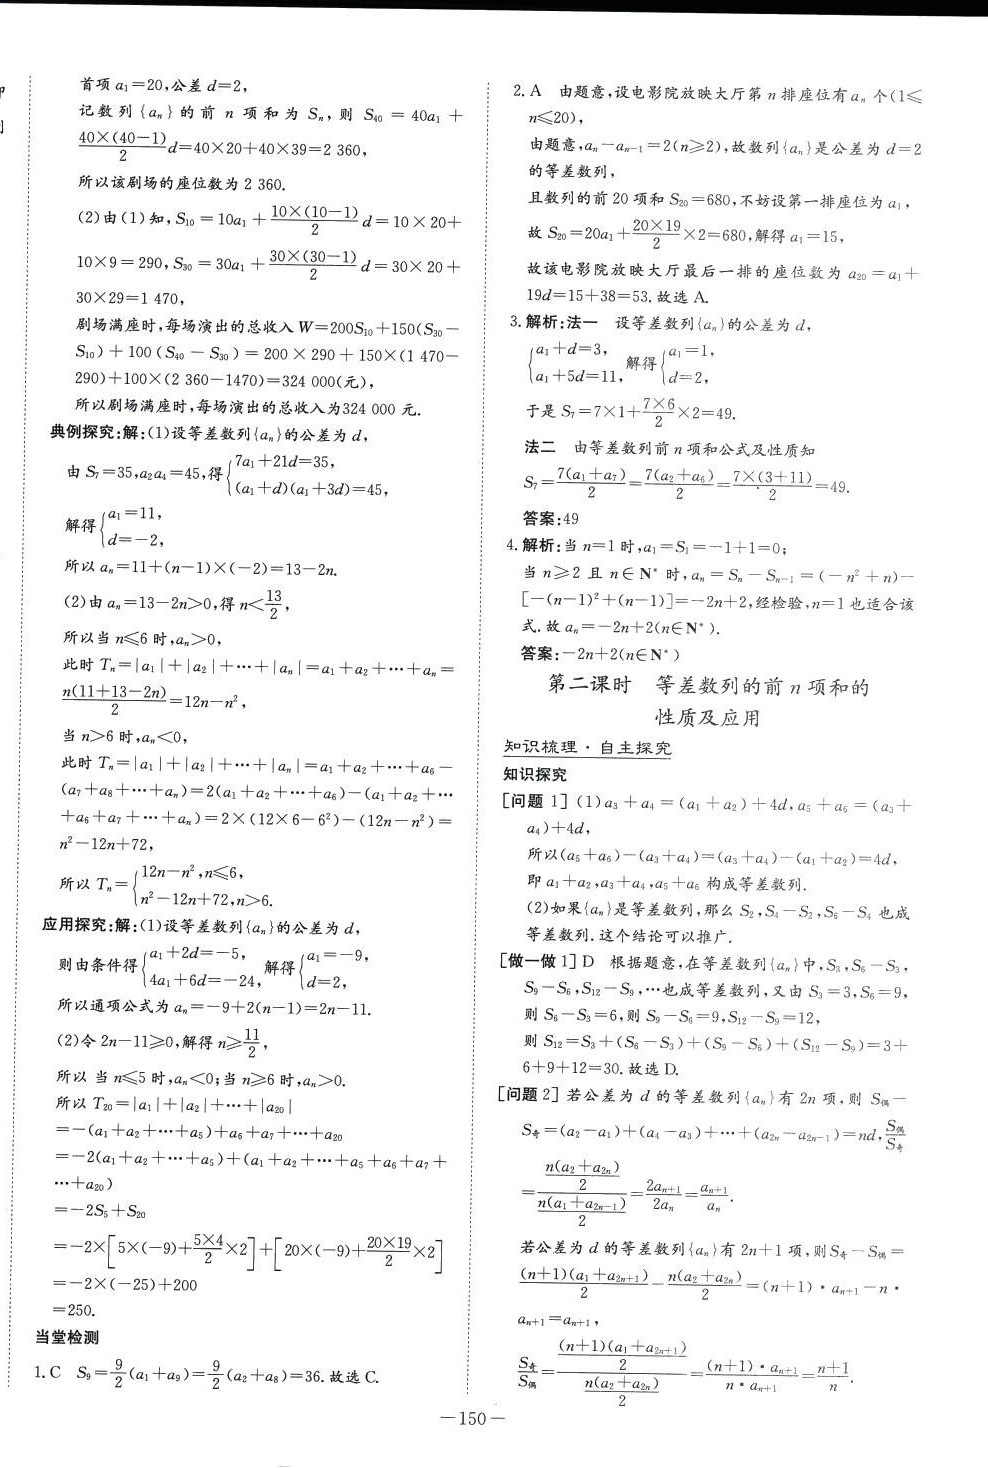 首项 a₁=20,公差 d=2,
记数列{aₙ}的前 n 项和为 Sₙ,则 S₄₀ = 40a₁ +
40×(40−1)/2 d=40×20+40×39=2 360,
所以该剧场的座位数为 2 360.
(2)由(1)知,S₁₀ = 10a₁ + 10×(10−1)/2 d = 10×20+
10×9=290,S₃₀ = 30a₁ + 30×(30−1)/2 d = 30×20+
30×29=1 470,
剧场满座时,每场演出的总收入 W=200S₁₀+150(S₃₀−
S₁₀)+100(S₄₀−S₃₀)=200×290+150×(1 470−
290)+100×(2 360−1470)=324 000(元),
所以剧场满座时,每场演出的总收入为324 000 元.
典例探究:解:(1)设等差数列{aₙ}的公差为 d,
由 S₇=35,a₂a₄=45,得{7a₁+21d=35,
(a₁+d)(a₁+3d)=45,
解得{a₁=11,
d=−2,
所以 aₙ=11+(n−1)×(−2)=13−2n.
(2)由 aₙ=13−2n>0,得 n<13/2,
所以当 n⩽6 时,aₙ>0,
此时 Tₙ=|a₁|+|a₂|+⋯+|aₙ|=a₁+a₂+⋯+aₙ=
n(11+13−2n)/2=12n−n²,
当 n>6 时,aₙ<0,
此时 Tₙ=|a₁|+|a₂|+⋯+|aₙ|=a₁+a₂+⋯+a₆−
(a₇+a₈+⋯+aₙ)=2(a₁+a₂+⋯+a₆)−(a₁+a₂+⋯
+a₆+a₇+⋯+aₙ)=2×(12×6−6²)−(12n−n²)=
n²−12n+72,
所以 Tₙ={12n−n²,n⩽6,
n²−12n+72,n>6.
应用探究:解:(1)设等差数列{aₙ}的公差为 d,
则由条件得{a₁+2d=−5,
4a₁+6d=−24, 解得{a₁=−9,
d=2,
所以通项公式为 aₙ=−9+2(n−1)=2n−11.
(2)令 2n−11⩾0,解得 n⩾11/2,
所以 当 n⩽5 时,aₙ<0;当 n⩾6 时,aₙ>0.
所以 T₂₀=|a₁|+|a₂|+⋯+|a₂₀|
=−(a₁+a₂+⋯+a₅)+a₆+a₇+⋯+a₂₀
=−2(a₁+a₂+⋯+a₅)+(a₁+a₂+⋯+a₅+a₆+a₇+
⋯+a₂₀)
=−2S₅+S₂₀
=−2×[5×(−9)+5×4/2×2]+[20×(−9)+20×19/2×2]
=−2×(−25)+200
=250.
当堂检测
1. C S₉=9/2(a₁+a₉)=9/2(a₂+a₈)=36. 故选 C.
2. A 由题意,设电影院放映大厅第 n 排座位有 aₙ 个(1⩽
n⩽20),
由题意,aₙ−aₙ₋₁=2(n⩾2),故数列{aₙ}是公差为 d=2
的等差数列,
且数列的前 20 项和 S₂₀=680,不妨设第一排座位为 a₁,
故 S₂₀=20a₁+20×19/2×2=680,解得 a₁=15,
故该电影院放映大厅最后一排的座位数为 a₂₀=a₁+
19d=15+38=53. 故选 A.
3. 解析:法一 设等差数列{aₙ}的公差为 d,
{a₁+d=3,
a₁+5d=11, 解得{a₁=1,
d=2,
于是 S₇=7×1+7×6/2×2=49.
法二 由等差数列前 n 项和公式及性质知
S₇=7(a₁+a₇)/2=7(a₂+a₆)/2=7×(3+11)/2=49.
答案:49
4. 解析:当 n=1 时,a₁=S₁=−1+1=0;
当 n⩾2 且 n∈N* 时,aₙ=Sₙ−Sₙ₋₁=(−n²+n)−
[−(n−1)²+(n−1)]=−2n+2,经检验,n=1 也适合该
式. 故 aₙ=−2n+2(n∈N*).
答案:−2n+2(n∈N*)
第二课时 等差数列的前 n 项和的
性质及应用
知识梳理·自主探究
知识探究
[问题 1] (1)a₃+a₄=(a₁+a₂)+4d,a₅+a₆=(a₃+
a₄)+4d,
所以(a₅+a₆)−(a₃+a₄)=(a₃+a₄)−(a₁+a₂)=4d,
即 a₁+a₂,a₃+a₄,a₅+a₆ 构成等差数列.
(2)如果{aₙ}是等差数列,那么 S₂,S₄−S₂,S₆−S₄ 也成
等差数列. 这个结论可以推广.
[做一做 1] D 根据题意,在等差数列{aₙ}中,S₃,S₆−S₃,
S₉−S₆,S₁₂−S₉,⋯也成等差数列,又由 S₃=3,S₆=9,
则 S₆−S₃=6,则 S₉−S₆=9,S₁₂−S₉=12,
则 S₁₂=S₃+(S₆−S₃)+(S₉−S₆)+(S₁₂−S₉)=3+
6+9+12=30. 故选 D.
[问题 2] 若公差为 d 的等差数列{aₙ}有 2n 项,则 S偶−
S奇=(a₂−a₁)+(a₄−a₃)+⋯+(a₂ₙ−a₂ₙ₋₁)=nd,S偶/S奇
=[n(a₂+a₂ₙ)/2]/[n(a₁+a₂ₙ₋₁)/2]=2aₙ₊₁/2aₙ=aₙ₊₁/aₙ.
若公差为 d 的等差数列{aₙ}有 2n+1 项,则S奇−S偶=
(n+1)(a₁+a₂ₙ₊₁)/2−n(a₂+a₂ₙ)/2=(n+1)·aₙ₊₁−n·
aₙ₊₁=aₙ₊₁,
S奇/S偶=[(n+1)(a₁+a₂ₙ₊₁)/2]/[n(a₂+a₂ₙ)/2]=(n+1)·aₙ₊₁/n·aₙ₊₁=n+1/n.
—150—